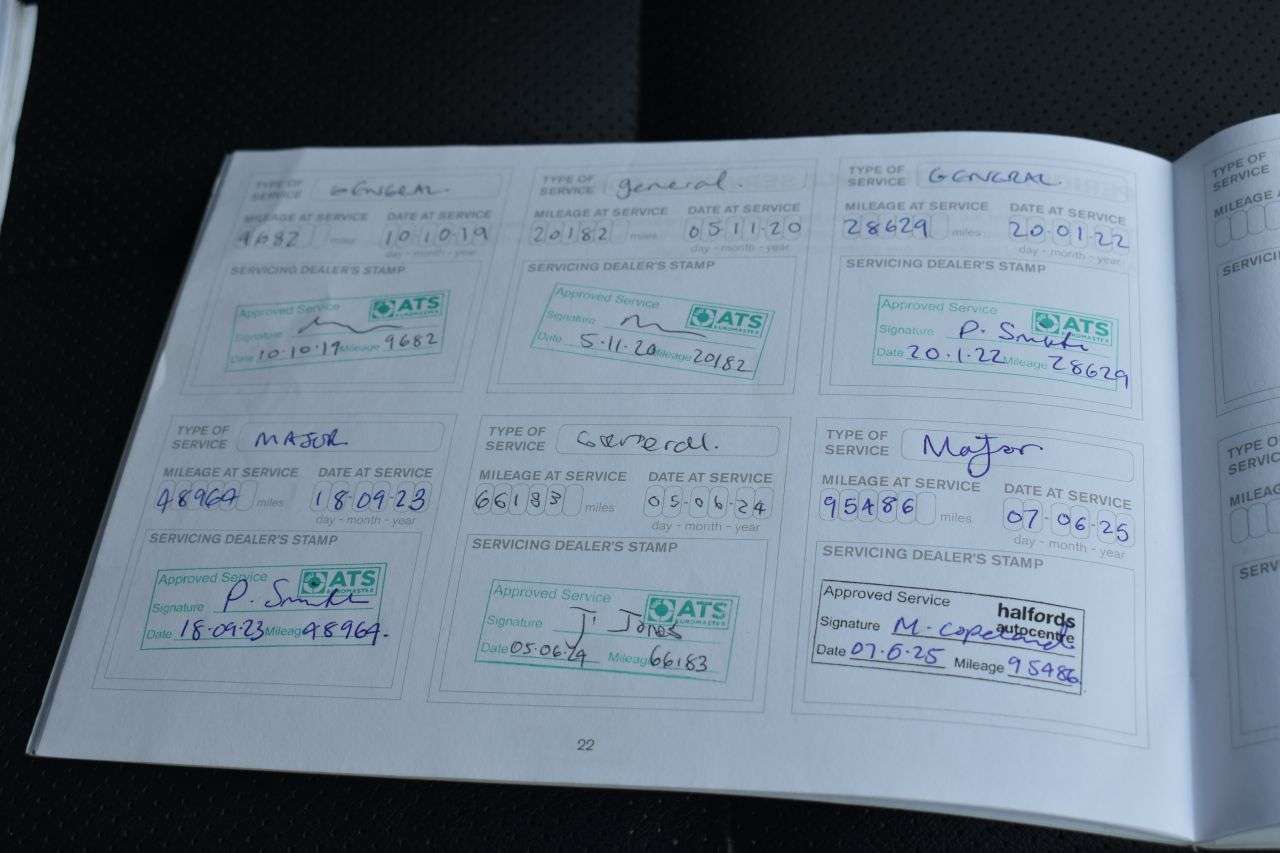 TYPE OF SERVICE GENERAL.
MILEAGE AT SERVICE DATE AT SERVICE
9682 miles 10-10-19
day - month - year
SERVICING DEALER'S STAMP
Approved Service ATS EUROMASTER
Signature
Date 10.10.19 Mileage 9682
TYPE OF SERVICE general.
MILEAGE AT SERVICE DATE AT SERVICE
20182 miles 05-11-20
day - month - year
SERVICING DEALER'S STAMP
Approved Service ATS EUROMASTER
Signature
Date 5.11.20 Mileage 20182
TYPE OF SERVICE GENERAL
MILEAGE AT SERVICE DATE AT SERVICE
28629 miles 20-01-22
day - month - year
SERVICING DEALER'S STAMP
Approved Service ATS EUROMASTER
Signature P. Smith
Date 20.1.22 Mileage 28629
TYPE OF SERVICE MAJOR
MILEAGE AT SERVICE DATE AT SERVICE
48964 miles 18-09-23
day - month - year
SERVICING DEALER'S STAMP
Approved Service ATS EUROMASTER
Signature P. Smith
Date 18.09.23 Mileage 48964.
TYPE OF SERVICE General.
MILEAGE AT SERVICE DATE AT SERVICE
66183 miles 05-06-24
day - month - year
SERVICING DEALER'S STAMP
Approved Service ATS EUROMASTER
Signature J. Jones
Date 05.06.24 Mileage 66183
TYPE OF SERVICE Major
MILEAGE AT SERVICE DATE AT SERVICE
95486 miles 07-06-25
day - month - year
SERVICING DEALER'S STAMP
Approved Service halfords autocentre
Signature M. Copeland
Date 07.6.25 Mileage 95486
22
TYPE OF SERVICE
MILEAGE
TYPE OF SERVICE
MILEAGE